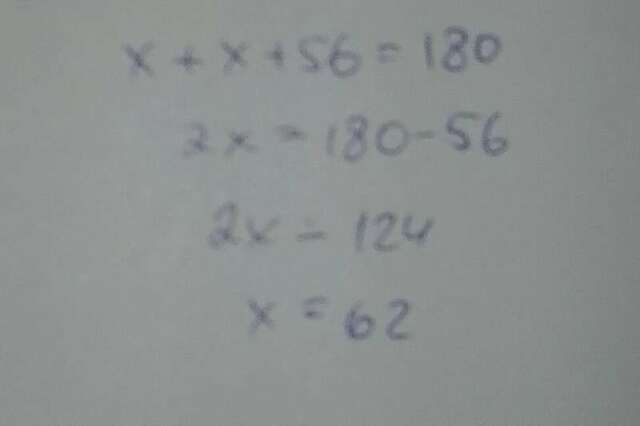 x + x + 56 = 180
2x = 180 - 56
2x = 124
x = 62